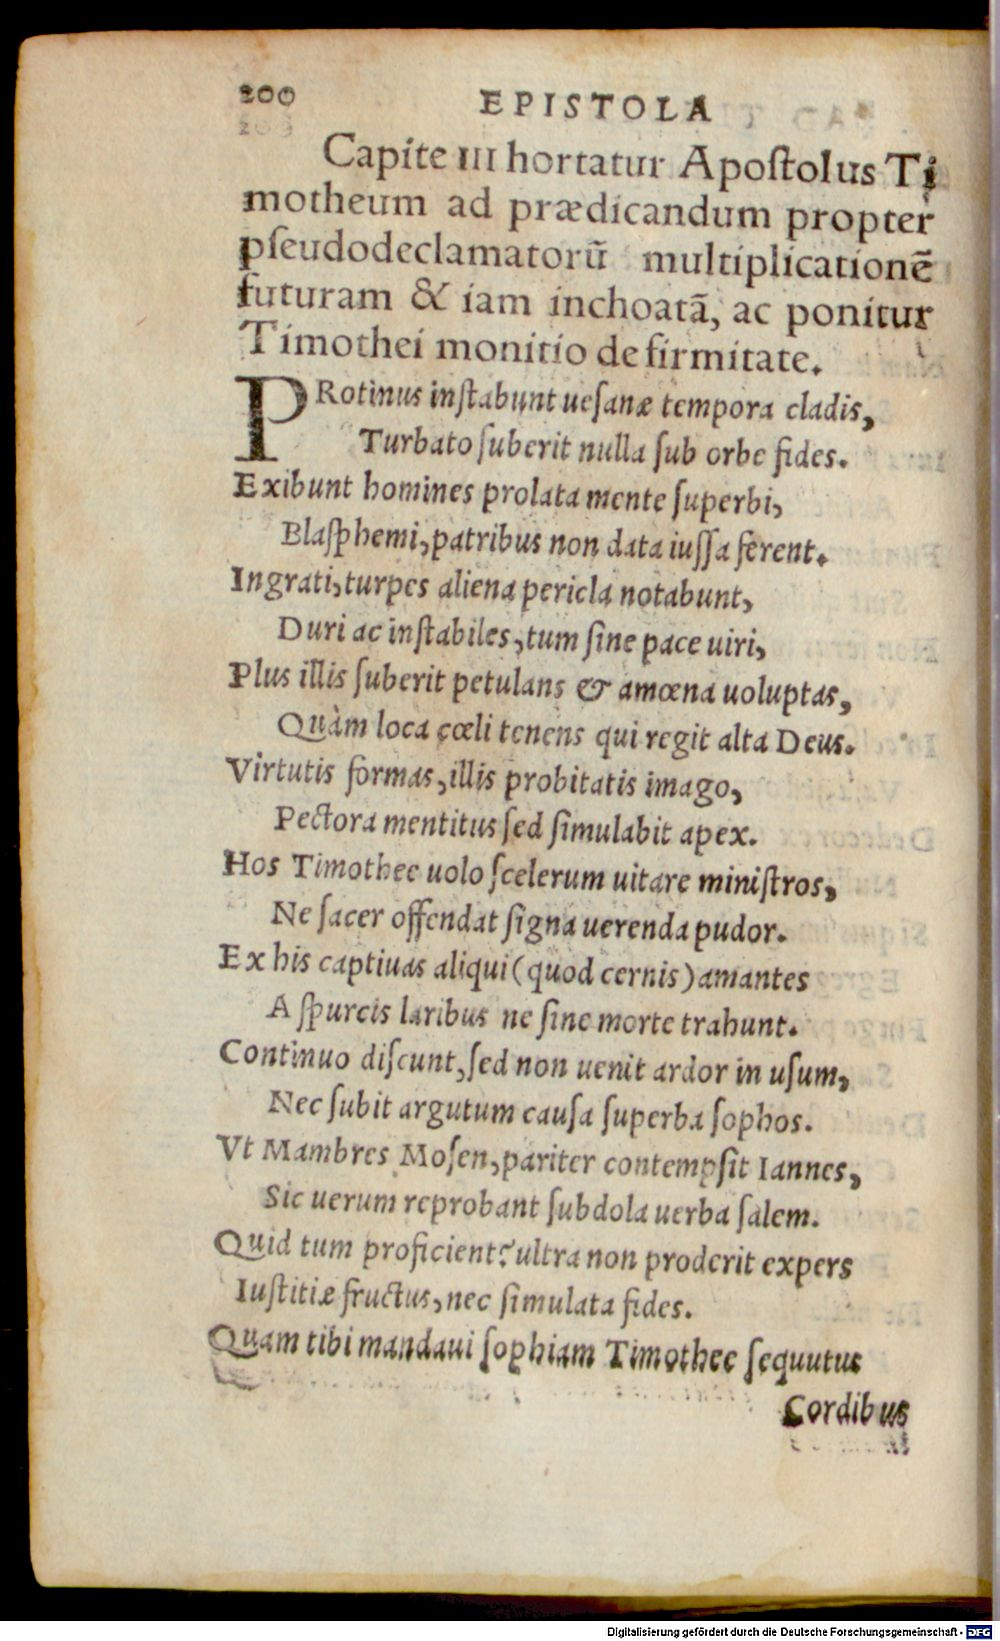 200 EPISTOLA
Capite III hortatur Apoſtolus Ti
motheum ad prædicandum propter
pſeudodeclamatorũ multiplicationẽ
futuram & iam inchoatã, ac ponitur
Timothei monitio de firmitate.
PRotinus inſtabunt ueſanæ tempora cladis,
Turbato ſuberit nulla ſub orbe fides.
Exibunt homines prolata mente ſuperbi,
Blaſphemi, patribus non data iuſſa ferent.
Ingrati, turpes aliena pericla notabunt,
Duri ac inſtabiles, tum ſine pace uiri,
Plus illis ſuberit petulans & amœna uoluptas,
Quàm loca cœli tenens qui regit alta Deus.
Virtutis formas, illis probitatis imago,
Pectora mentitus ſed ſimulabit apex.
Hos Timothee uolo ſcelerum uitare miniſtros,
Ne ſacer offendat ſigna uerenda pudor.
Ex his captiuas aliqui (quod cernis) amantes
A ſpurcis laribus ne ſine morte trahunt.
Continuo diſcunt, ſed non uenit ardor in uſum,
Nec ſubit argutum cauſa ſuperba ſophos.
Vt Mambres Moſen, pariter contempſit Iannes,
Sic uerum reprobant ſubdola uerba ſalem.
Quid tum proficient? ultra non proderit expers
Iuſtitiæ fructus, nec ſimulata fides.
Quam tibi mandaui ſophiam Timothee ſequutus
Cordibus
Digitalisierung gefördert durch die Deutsche Forschungsgemeinschaft - DFG